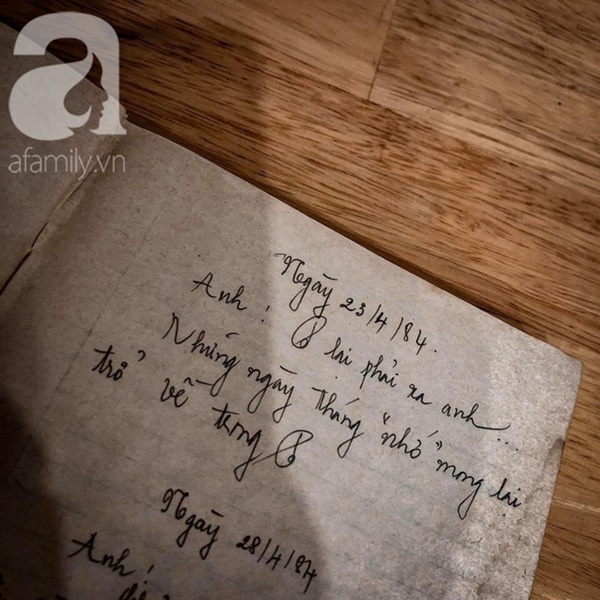 a
afamily.vn
Ngày 23/4/84.
Anh! lại phải xa anh...
Những ngày tháng "nhớ" mong lại
trở về trong
Ngày 28/4/84
Anh!